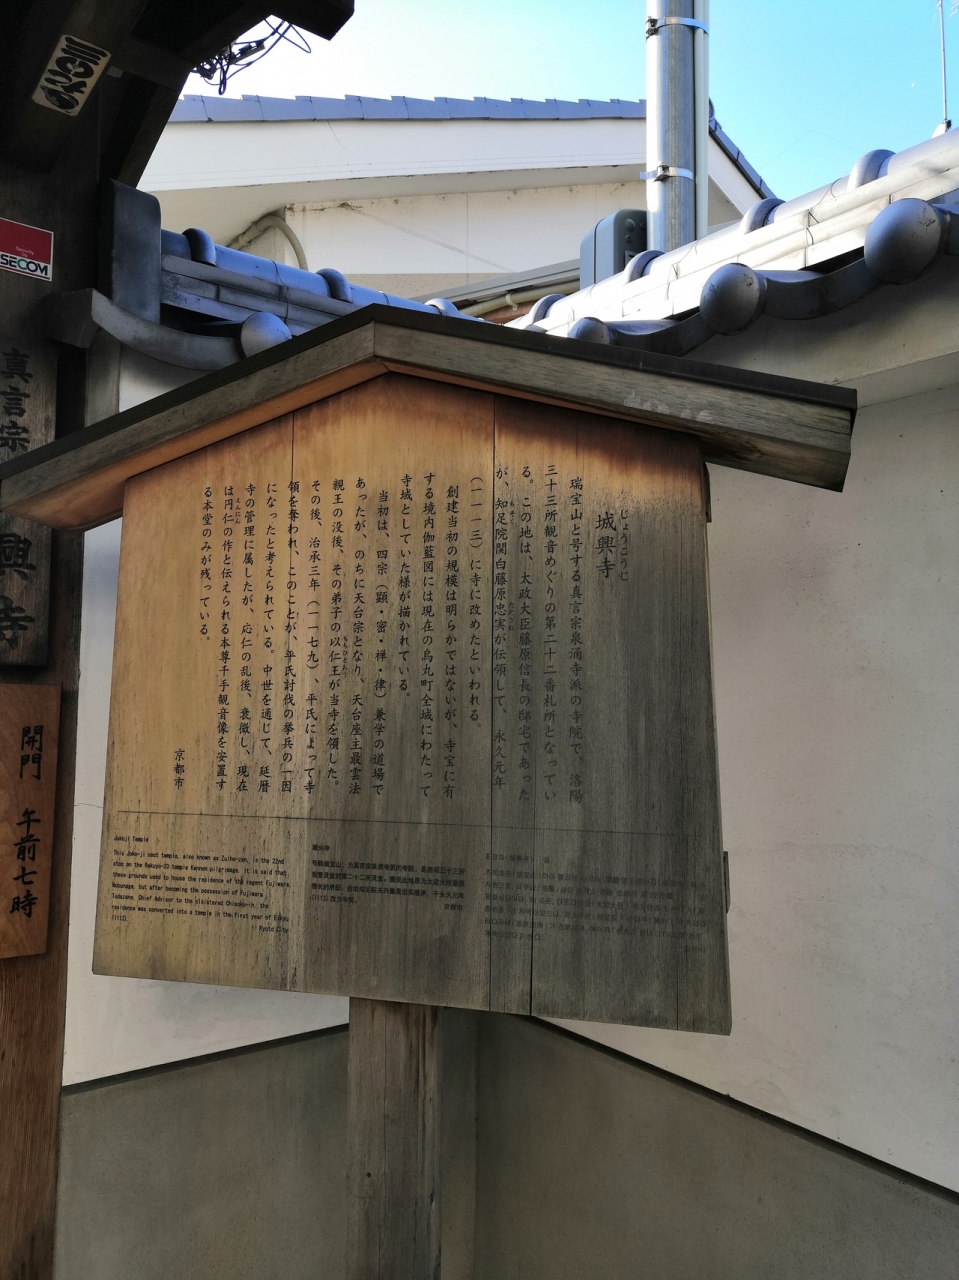 SECOM
真言宗
興寺
開門 午前七時
じょうこうじ
城興寺
瑞宝山と号する真言宗泉涌寺派の寺院で、洛陽
三十三所観音めぐりの第二十二番札所となってい
る。この地は、太政大臣藤原信長の邸宅であった
が、知足院関白藤原忠実が伝領して、永久元年
(一一一三)に寺に改めたといわれる。
創建当初の規模は明らかではないが、寺宝に有
する境内伽藍図には現在の烏丸町全域にわたって
寺域としていた様が描かれている。
当初は、四宗(顕・密・禅・律)兼学の道場で
あったが、のちに天台宗となり、天台座主最雲法
親王の没後、その弟子の以仁王が当寺を領した。
その後、治承三年(一一七九)、平氏によって寺
領を奪われ、このことが、平氏討伐の挙兵の一因
になったと考えられている。中世を通じて、延暦
寺の管理に属したが、応仁の乱後、衰微し、現在
は円仁の作と伝えられる本尊千手観音像を安置す
る本堂のみが残っている。
京都市
Temple
This Joko-ji sect temple, also known as Zuiho-zan, is the 22nd
stop on the Rakuyo-33 temple Kannon pilgrimage. It is said that
these grounds used to house the residence of the regent Fujiwara
Nobunaga, but after becoming the possession of Fujiwara
Tadazane, Chief Advisor to the cloistered Chisoku-in, the
residence was converted into a temple in the first year of Eikyu
Kyoto City